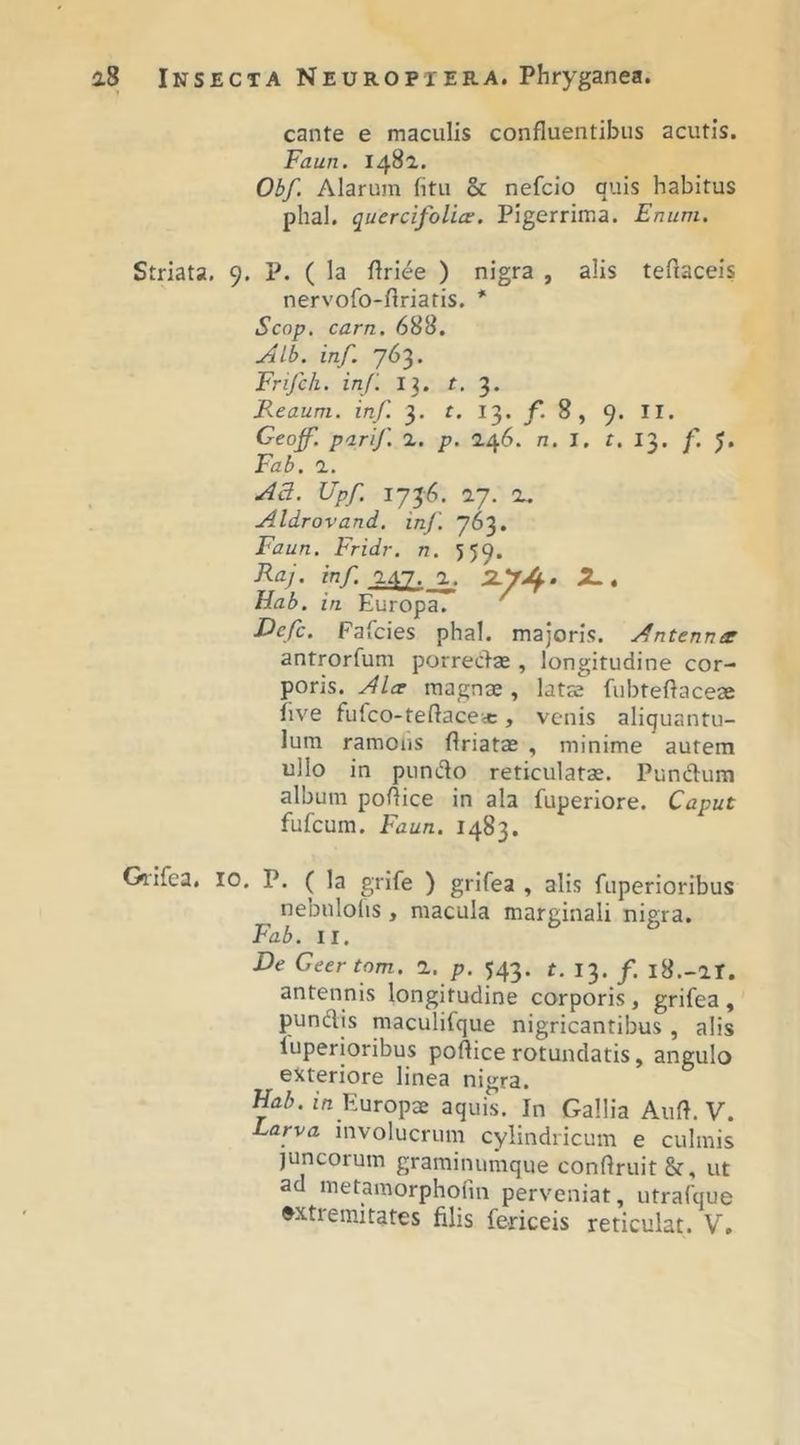 28 INSECTA NEUROPTERA. Phryganea.
cante e maculis confluentibus acutis.
Faun. 1482.
Obſ. Alarum ſitu & neſcio quis habitus
phal. quercifoliæ. Pigerrima. Enum.
Striata. 9. P. ( la ſtriée ) nigra , alis teſtaceis
nervoſo-ſtriatis. *
Scop. carn. 688.
Alb. inſ. 763.
Friſch. inſ. 13. t. 3.
Reaum. inſ. 3. t. 13. f. 8, 9. 11.
Geoff. pariſ. 2. p. 246. n. 1. t. 13. f. 5.
Fab. 2.
Act. Upſ. 1736. 27. 2.
Aldrovand. inſ. 763.
Faun. Fridr. n. 559.
Raj. inſ. 247. 2. 274. 2..
Hab. in Europa.
Deſc. Faſcies phal. majoris. Antennæ
antrorſum porrectæ , longitudine cor-
poris. Alæ magnæ , latæ ſubteſtaceæ
ſive fuſco-teſtaceæ , venis aliquantu-
lum ramoſis ſtriatæ , minime autem
ullo in puncto reticulatæ. Punctum
album poſtice in ala ſuperiore. Caput
fuſcum. Faun. 1483.
Griſea. 10. P. ( la griſe ) griſea , alis ſuperioribus
nebuloſis , macula marginali nigra.
Fab. 11.
De Geer tom. 2. p. 543. t. 13. f. 18.-21.
antennis longitudine corporis, griſea ,
punctis maculiſque nigricantibus , alis
ſuperioribus poſtice rotundatis, angulo
exteriore linea nigra.
Hab. in Europæ aquis. In Gallia Auſt. V.
Larva involucrum cylindricum e culmis
juncorum graminumque conſtruit &, ut
ad metamorphoſin perveniat, utraſque
extremitates filis ſericeis reticulat. V.